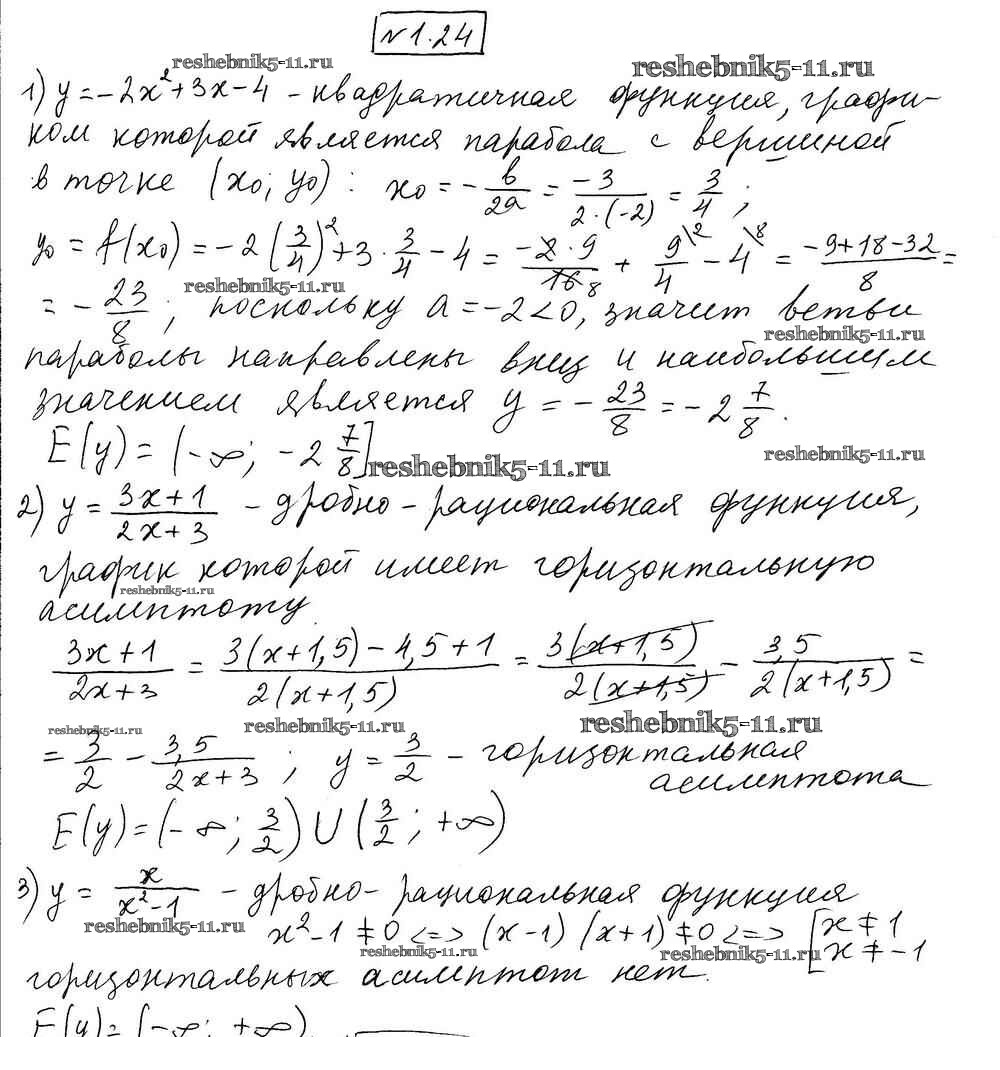 №1.24
reshebnik5-11.ru reshebnik5-11.ru
1) y = -2x² + 3x - 4 - квадратичная функция, графи-
ком которой является парабола с вершиной
в точке (x₀; y₀): x₀ = - b/2a = -3/(2·(-2)) = 3/4;
y₀ = f(x₀) = -2(3/4)² + 3·3/4 - 4 = (-2·9)/16 8 + 9/4 \2 - 4 \8 = (-9+18-32)/8 =
reshebnik5-11.ru
= - 23/8; поскольку a = -2 < 0, значит ветви
reshebnik5-11.ru
параболы направлены вниз и наибольшим
значением является y = - 23/8 = - 2 7/8.
E(y) = (-∞; -2 7/8]
reshebnik5-11.ru reshebnik5-11.ru
2) y = (3x+1)/(2x+3) - дробно-рациональная функция,
график которой имеет горизонтальную
reshebnik5-11.ru
асимптоту
(3x+1)/(2x+3) = (3(x+1,5) - 4,5 + 1)/(2(x+1,5)) = (3(x+1,5))/(2(x+1,5)) - 3,5/(2(x+1,5)) =
reshebnik5-11.ru reshebnik5-11.ru reshebnik5-11.ru
= 3/2 - 3,5/(2x+3); y = 3/2 - горизонтальная
асимптота
E(y) = (-∞; 3/2) ∪ (3/2; +∞)
3) y = x/(x²-1) - дробно-рациональная функция
reshebnik5-11.ru
x²-1 ≠ 0 <=> (x-1)(x+1) ≠ 0 <=> [x ≠ 1
x ≠ -1
reshebnik5-11.ru reshebnik5-11.ru
горизонтальных асимптот нет.
E(y) = (-∞; +∞)